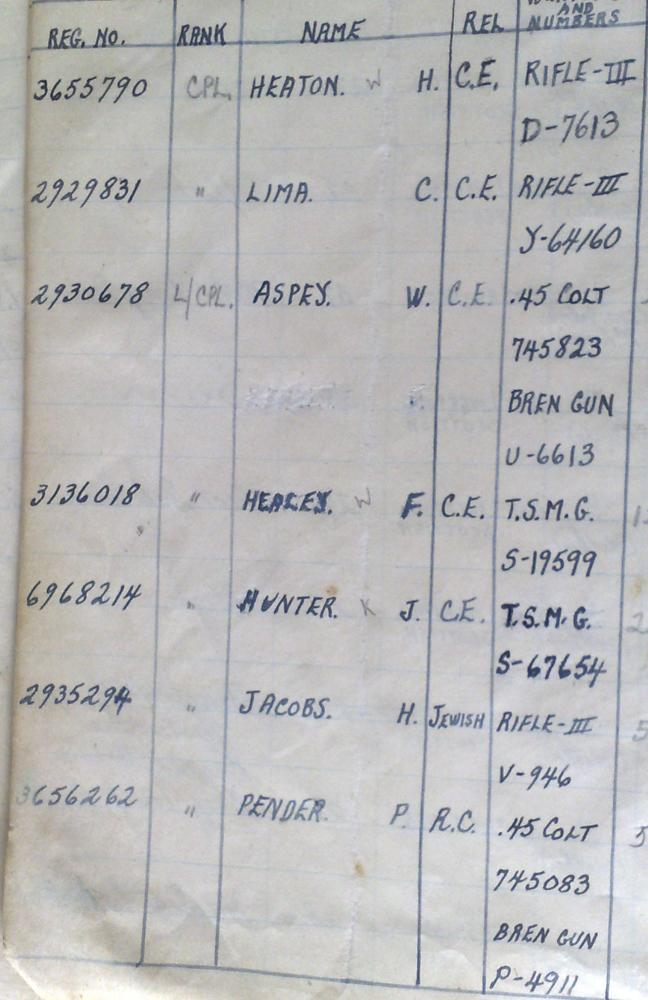 AND
REG. NO. RANK NAME REL NUMBERS
3655790 CPL. HEATON. W H. C.E. RIFLE-III
D-7613
2929831 " LIMA. C. C.E. RIFLE-III
Y-64160
2930678 L/CPL. ASPEY. W. C.E. .45 COLT
745823
BREN GUN
U-6613
3136018 " HEALEY. W F. C.E. T.S.M.G.
S-19599
6968214 " HUNTER. K J. C.E. T.S.M.G.
S-67654
2935294 " JACOBS. H. JEWISH RIFLE-III
V-946
3656262 " PENDER. P. R.C. .45 COLT
745083
BREN GUN
P-4911